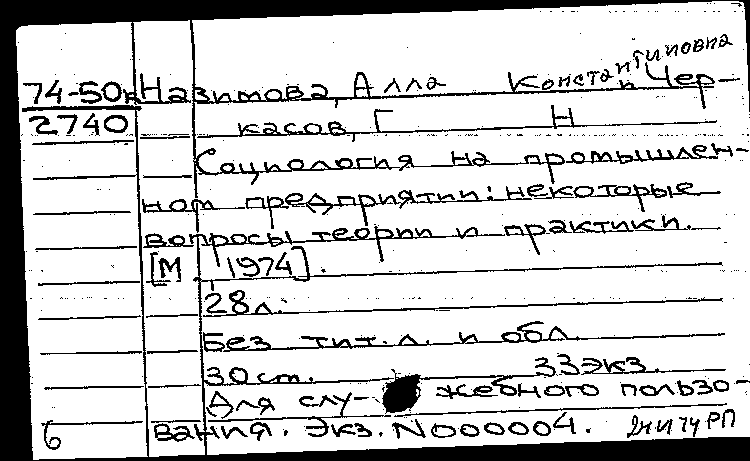 74-50к Назимова, Алла Константиновна и Чер-
2740 касов, Г Н
Социология на промышлен-
ном предприятии: некоторые
вопросы теории и практики.
[М, 1974].
28л.
Без тит.л. и обл.
30 cm. 33экз.
Для слу- жебного пользо-
6 вания. Экз. N000004.